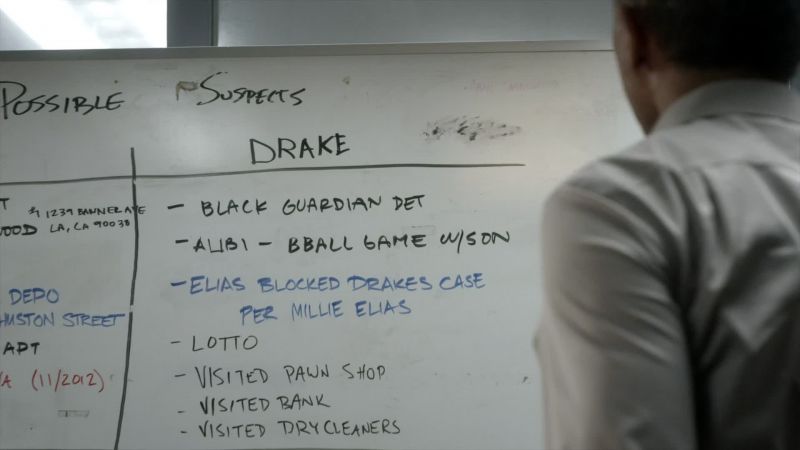 POSSIBLE SUSPECTS
DRAKE
T #1 1239 BANNER AVE
WOOD LA, CA 90038
DEPO
HUSTON STREET
APT
/A (11/2012)
- BLACK GUARDIAN DET
- ALIBI - BBALL GAME W/SON
- ELIAS BLOCKED DRAKES CASE
PER MILLIE ELIAS
- LOTTO
- VISITED PAWN SHOP
- VISITED BANK
- VISITED DRYCLEANERS